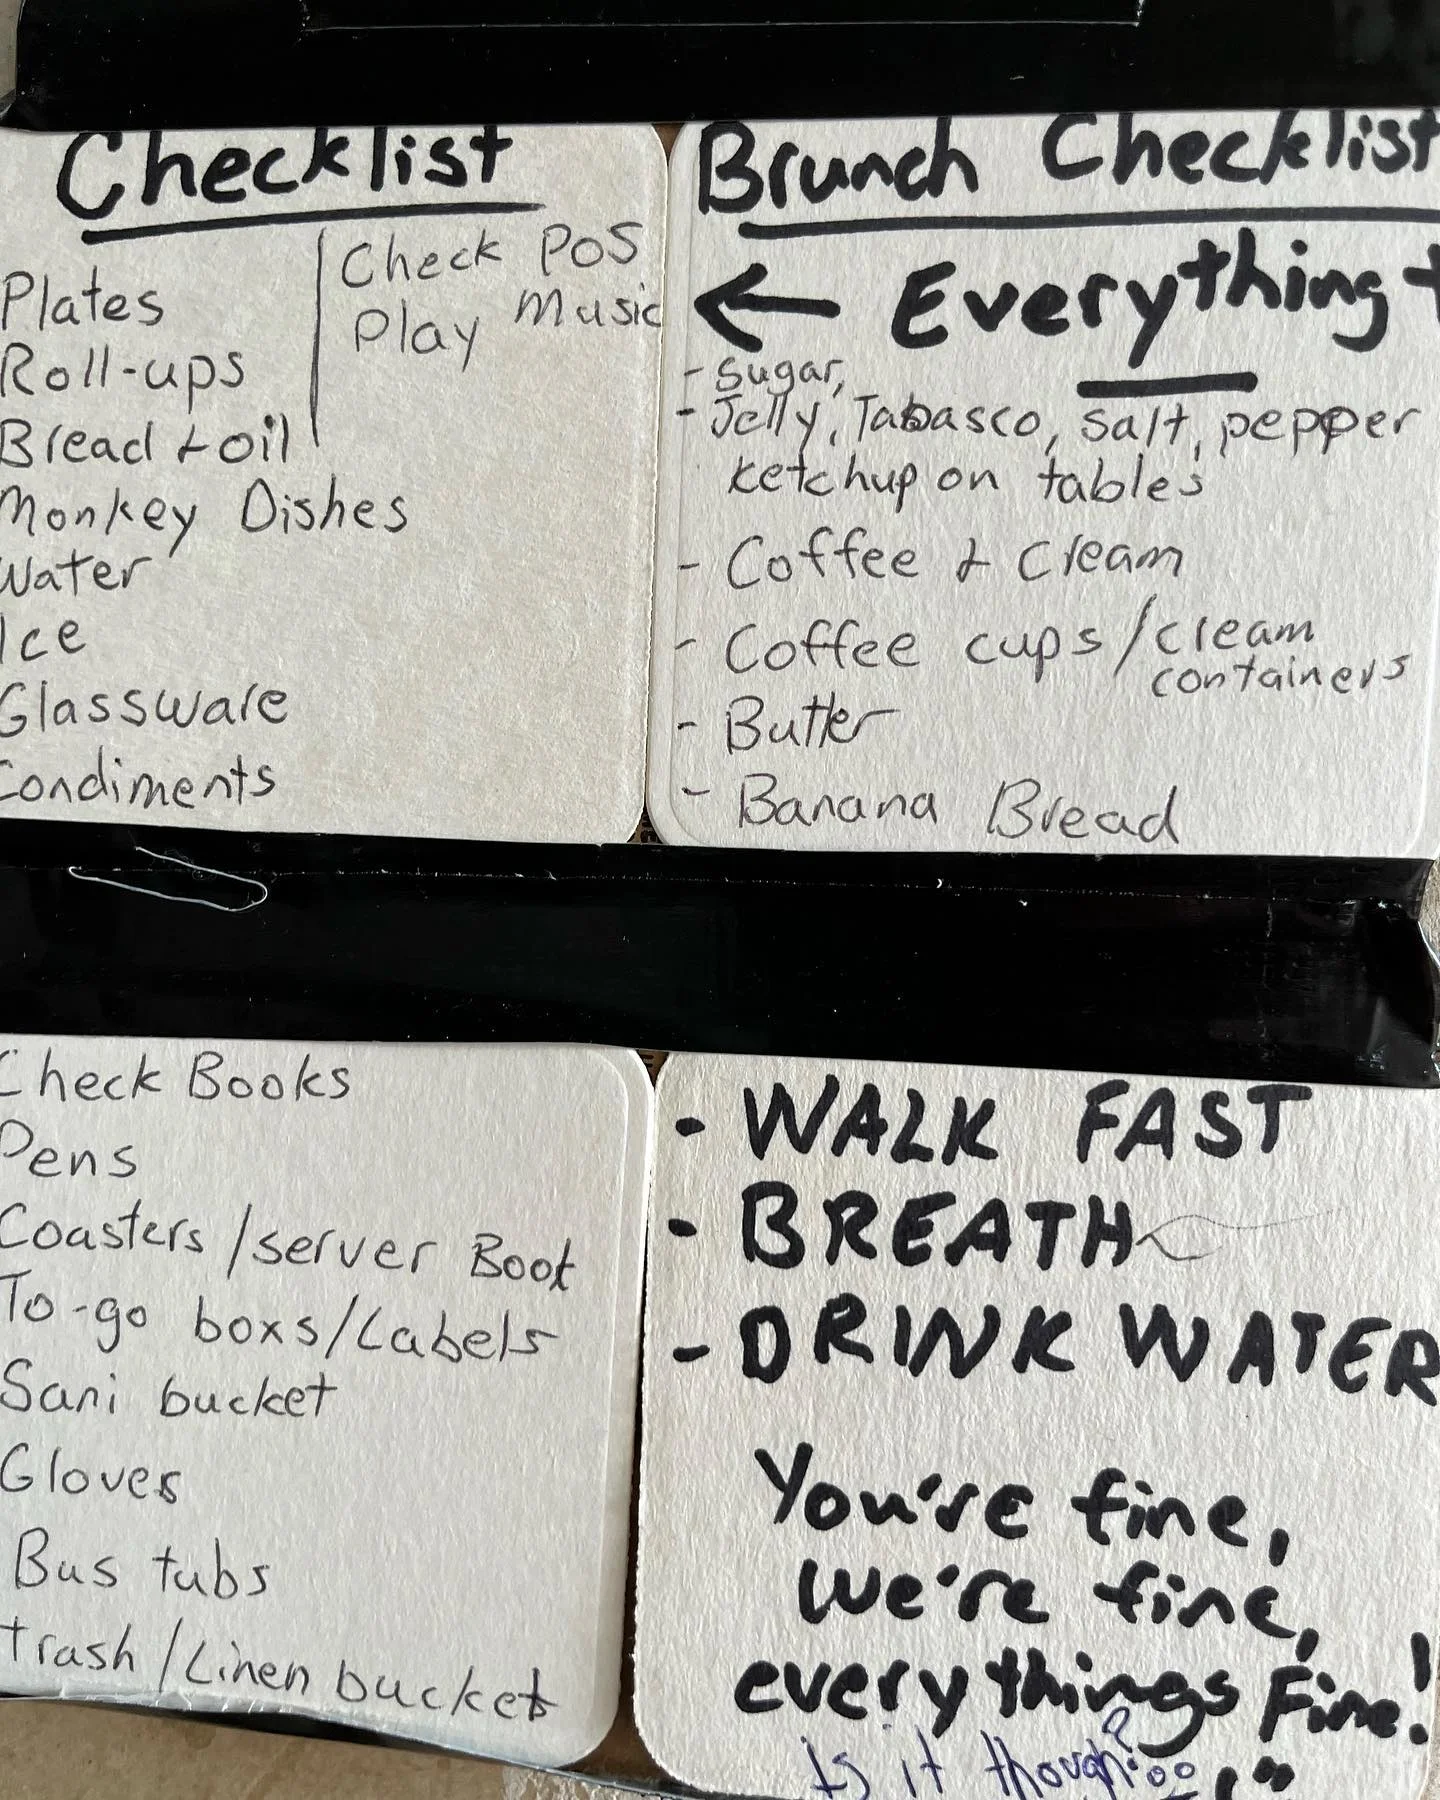 Checklist
Plates
Roll-ups
Bread + oil
Monkey Dishes
Water
Ice
Glassware
Condiments
Check POS
Play Music
Brunch Checklist
← Everything +
- Sugar,
- Jelly, Tabasco, salt, pepper
ketchup on tables
- Coffee & Cream
- Coffee cups / cream
containers
- Butter
- Banana Bread
Check Books
Pens
Coasters / server Book
To-go boxs / Labels
Sani bucket
Gloves
Bus tubs
trash / Linen bucket
- WALK FAST
- BREATH
- DRINK WATER
You're fine,
we're fine,
everythings Fine!
Is it though?